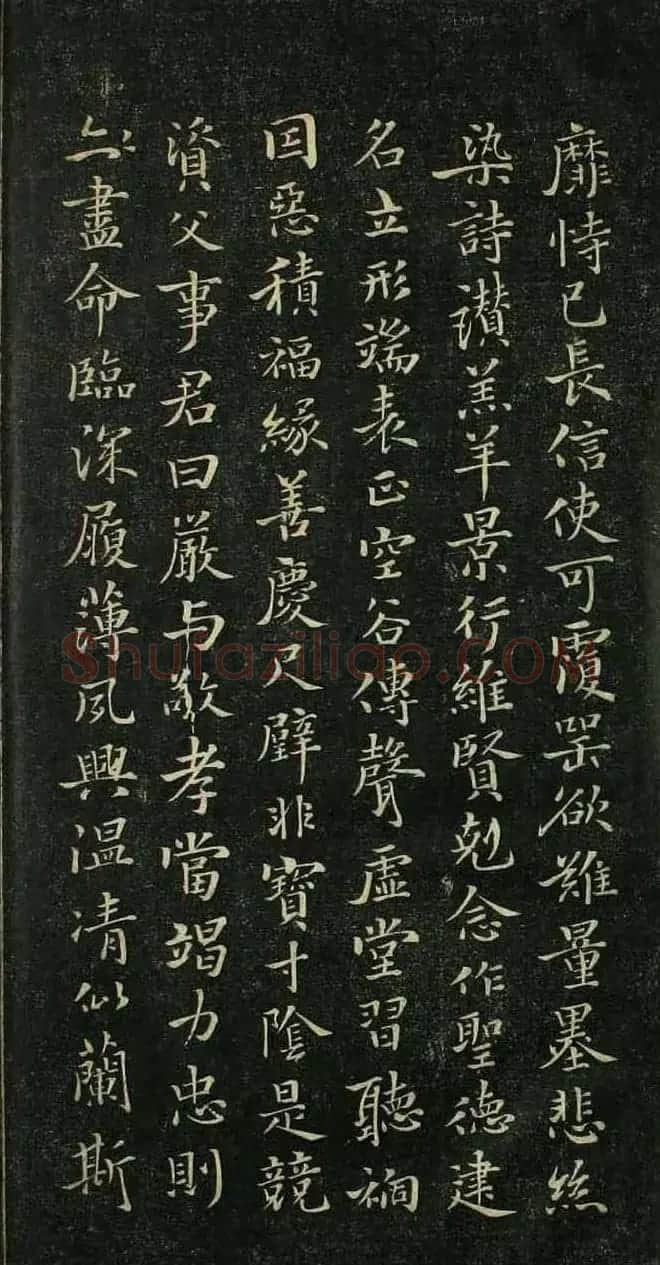 靡恃己長信使可覆器欲難量墨悲絲
染詩讃羔羊景行維賢剋念作聖德建
名立形端表正空谷傳聲虛堂習聽禍
因惡積福緣善慶尺璧非寶寸陰是競
資父事君曰嚴与敬孝當竭力忠則
盡命臨深履薄夙興温凊似蘭斯
Shufaziliao.COM